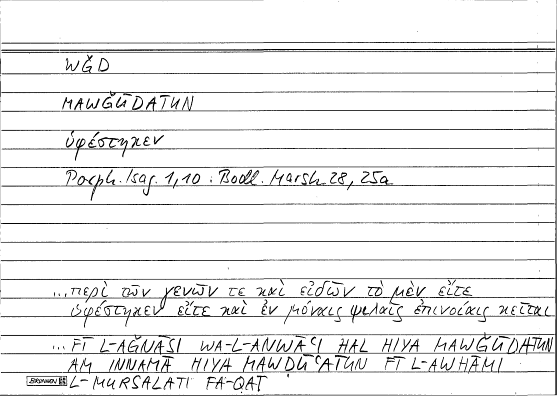 WǦD
MAWǦŪDATUN
ὑφέστηκεν
Porph. Isag. 1,10 : Bodl. Marsh 28, 25a
...περὶ τῶν γενῶν τε καὶ εἰδῶν τὸ μὲν εἴτε
ὑφέστηκεν εἴτε καὶ ἐν μόναις ψιλαῖς ἐπινοίαις κεῖται
...FĪ L-AǦNĀSI WA-L-ANWĀʿI HAL HIYA MAWǦŪDATUN
AM INNAMĀ HIYA MAWḌŪʿATUN FĪ L-AWHĀMI
L-MURSALATI FA-QAṬ